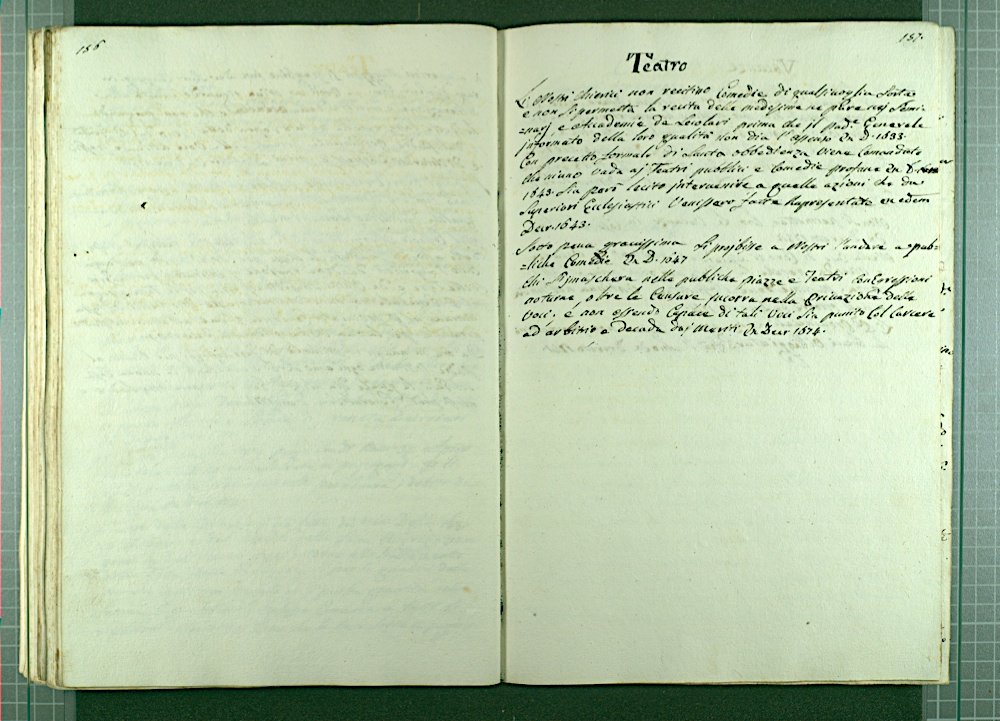 186
187.
Teatro
Li Nostri Chierici non recitino Comedie di qualsivoglia sorte
e non si permetta la recita delle medesime ne pure nej Semi-
=narj e Accademie de Scolari prima che il Pad.e Generale
informato della loro qualità non dia l'assenso Ex D. 1633.
Con precetto formale di Santa obbedienza viene Comandato
che niuno vada aj Teatri pubblici e Comedie profane Ex D.
1643. Sia però lecito intervenire a quelle azioni che da
Superiori Ecclesiastici venissero fatte Rapresentare ex eodem
Decr. 1643.
Sotto pena gravissima si proibisce a Nostri l'andare a pub=
=bliche Comedie Ex D. 1647
Chi si smaschera nelle pubbliche piazze e Teatri
noturne, oltre le Censure incorra nella Privazione della
voce, e non essendo Capace di tali Voci sia punito Col Carcere
ad arbitrio e decada daj Meriti Ex Decr 1674.